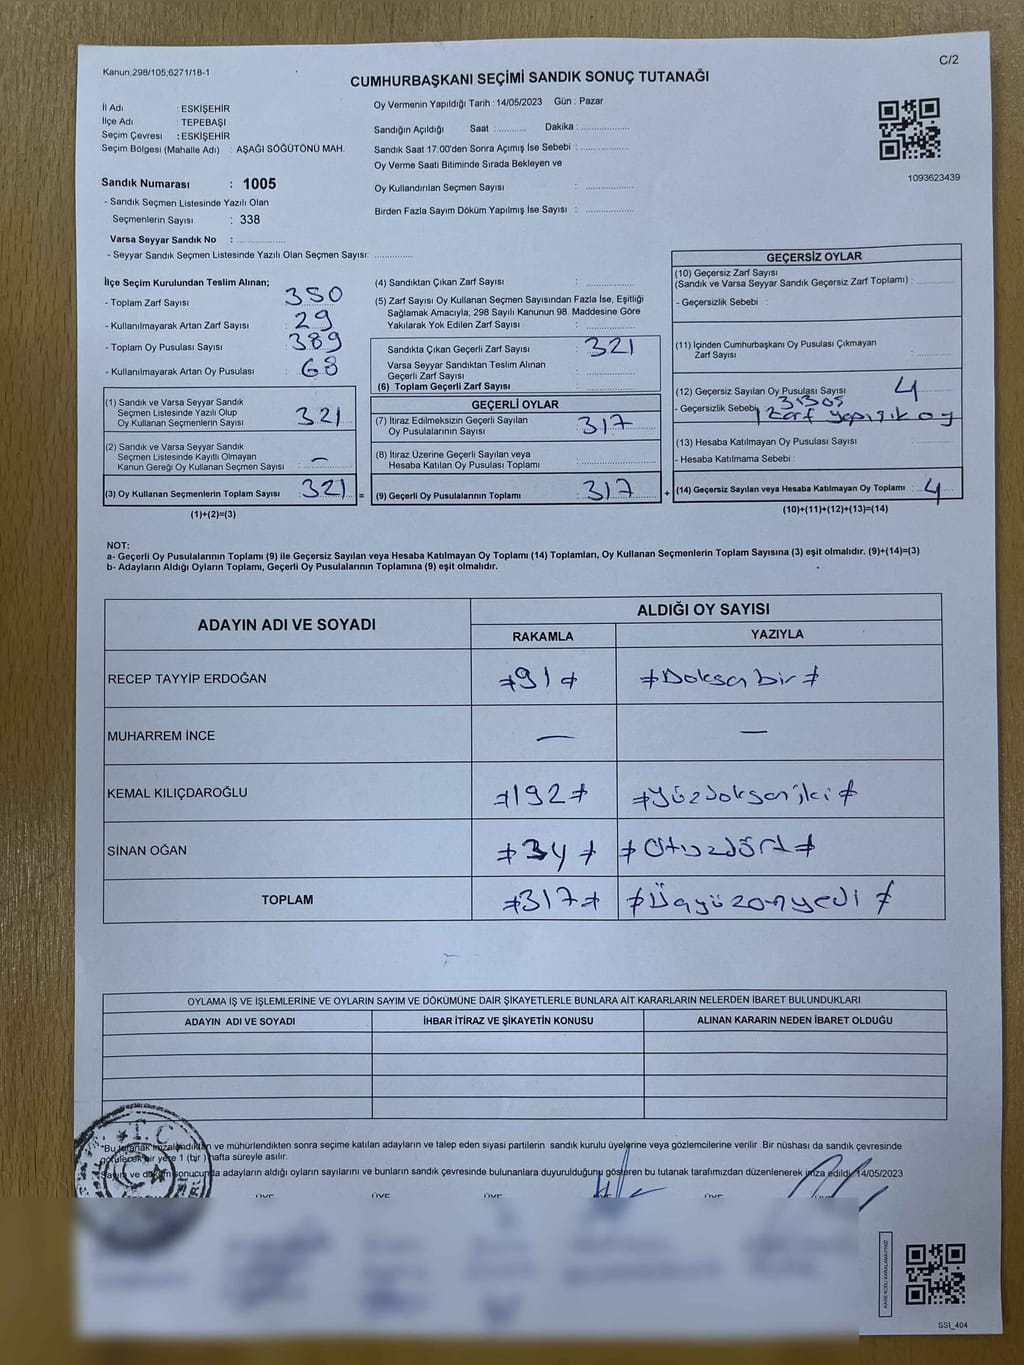 Kanun;298/105;6271/18-1
C/2
CUMHURBAŞKANI SEÇİMİ SANDIK SONUÇ TUTANAĞI
İl Adı : ESKİŞEHİR
İlçe Adı : TEPEBAŞI
Seçim Çevresi : ESKİŞEHİR
Seçim Bölgesi (Mahalle Adı) : AŞAĞI SÖĞÜTÖNÜ MAH.
Sandık Numarası : 1005
- Sandık Seçmen Listesinde Yazılı Olan
Seçmenlerin Sayısı : 338
Varsa Seyyar Sandık No : ................
- Seyyar Sandık Seçmen Listesinde Yazılı Olan Seçmen Sayısı: .............
Oy Vermenin Yapıldığı Tarih : 14/05/2023 Gün : Pazar
Sandığın Açıldığı Saat : ........... Dakika : .................
Sandık Saat 17:00'den Sonra Açımış İse Sebebi : .................
Oy Verme Saati Bitiminde Sırada Bekleyen ve
Oy Kullandırılan Seçmen Sayısı : .................
Birden Fazla Sayım Döküm Yapılmış İse Sayısı : .................
1093623439
İlçe Seçim Kurulundan Teslim Alınan;
- Toplam Zarf Sayısı : 350
- Kullanılmayarak Artan Zarf Sayısı : 29
- Toplam Oy Pusulası Sayısı : 389
- Kullanılmayarak Artan Oy Pusulası : 68
(1) Sandık ve Varsa Seyyar Sandık
Seçmen Listesinde Yazılı Olup
Oy Kullanan Seçmenlerin Sayısı : 321
(2) Sandık ve Varsa Seyyar Sandık
Seçmen Listesinde Kayıtlı Olmayan
Kanun Gereği Oy Kullanan Seçmen Sayısı : —
(3) Oy Kullanan Seçmenlerin Toplam Sayısı : 321 =
(1)+(2)=(3)
(4) Sandıktan Çıkan Zarf Sayısı : .................
(5) Zarf Sayısı Oy Kullanan Seçmen Sayısından Fazla İse, Eşitliği
Sağlamak Amacıyla; 298 Sayılı Kanunun 98. Maddesine Göre
Yakılarak Yok Edilen Zarf Sayısı : .................
Sandıkta Çıkan Geçerli Zarf Sayısı : 321
Varsa Seyyar Sandıktan Teslim Alınan
Geçerli Zarf Sayısı : .................
(6) Toplam Geçerli Zarf Sayısı : .................
GEÇERLİ OYLAR
(7) İtiraz Edilmeksizin Geçerli Sayılan
Oy Pusulalarının Sayısı : 317
(8) İtiraz Üzerine Geçerli Sayılan veya
Hesaba Katılan Oy Pusulası Toplamı : .................
(9) Geçerli Oy Pusulalarının Toplamı : 317 +
GEÇERSİZ OYLAR
(10) Geçersiz Zarf Sayısı
(Sandık ve Varsa Seyyar Sandık Geçersiz Zarf Toplamı) : .............
- Geçersizlik Sebebi :
(11) İçinden Cumhurbaşkanı Oy Pusulası Çıkmayan
Zarf Sayısı : .............
(12) Geçersiz Sayılan Oy Pusulası Sayısı : 4
- Geçersizlik Sebebi
1 zarf yapışık oy
(13) Hesaba Katılmayan Oy Pusulası Sayısı : .............
- Hesaba Katılmama Sebebi :
(14) Geçersiz Sayılan veya Hesaba Katılmayan Oy Toplamı : 4
(10)+(11)+(12)+(13)=(14)
NOT:
a- Geçerli Oy Pusulalarının Toplamı (9) ile Geçersiz Sayılan veya Hesaba Katılmayan Oy Toplamı (14) Toplamları, Oy Kullanan Seçmenlerin Toplam Sayısına (3) eşit olmalıdır. (9)+(14)=(3)
b- Adayların Aldığı Oyların Toplamı, Geçerli Oy Pusulalarının Toplamına (9) eşit olmalıdır.
ADAYIN ADI VE SOYADI ALDIĞI OY SAYISI
RAKAMLA YAZIYLA
RECEP TAYYİP ERDOĞAN ≠91≠ ≠Doksanbir≠
MUHARREM İNCE — —
KEMAL KILIÇDAROĞLU ≠192≠ ≠Yüzdoksaniki≠
SİNAN OĞAN ≠34≠ ≠Otuzdört≠
TOPLAM ≠317≠ ≠Üçyüzonyedi≠
OYLAMA İŞ VE İŞLEMLERİNE VE OYLARIN SAYIM VE DÖKÜMÜNE DAİR ŞİKAYETLERLE BUNLARA AİT KARARLARIN NELERDEN İBARET BULUNDUKLARI
ADAYIN ADI VE SOYADI İHBAR İTİRAZ VE ŞİKAYETİN KONUSU ALINAN KARARIN NEDEN İBARET OLDUĞU
T.C
"Bu tutanak imzalandıktan ve mühürlendikten sonra seçime katılan adayların ve talep eden siyasi partilerin sandık kurulu üyelerine veya gözlemcilerine verilir Bir nüshası da sandık çevresinde
görülecek bir yere 1 (bir) hafta süreyle asılır.
Sayım ve döküm sonucunda adayların aldığı oyların sayılarını ve bunların sandık çevresinde bulunanlara duyurulduğunu gösteren bu tutanak tarafımızdan düzenlenerek imza edildi. 14/05/2023
ÜYE ÜYE ÜYE ÜYE ÜYE
SSİ_404